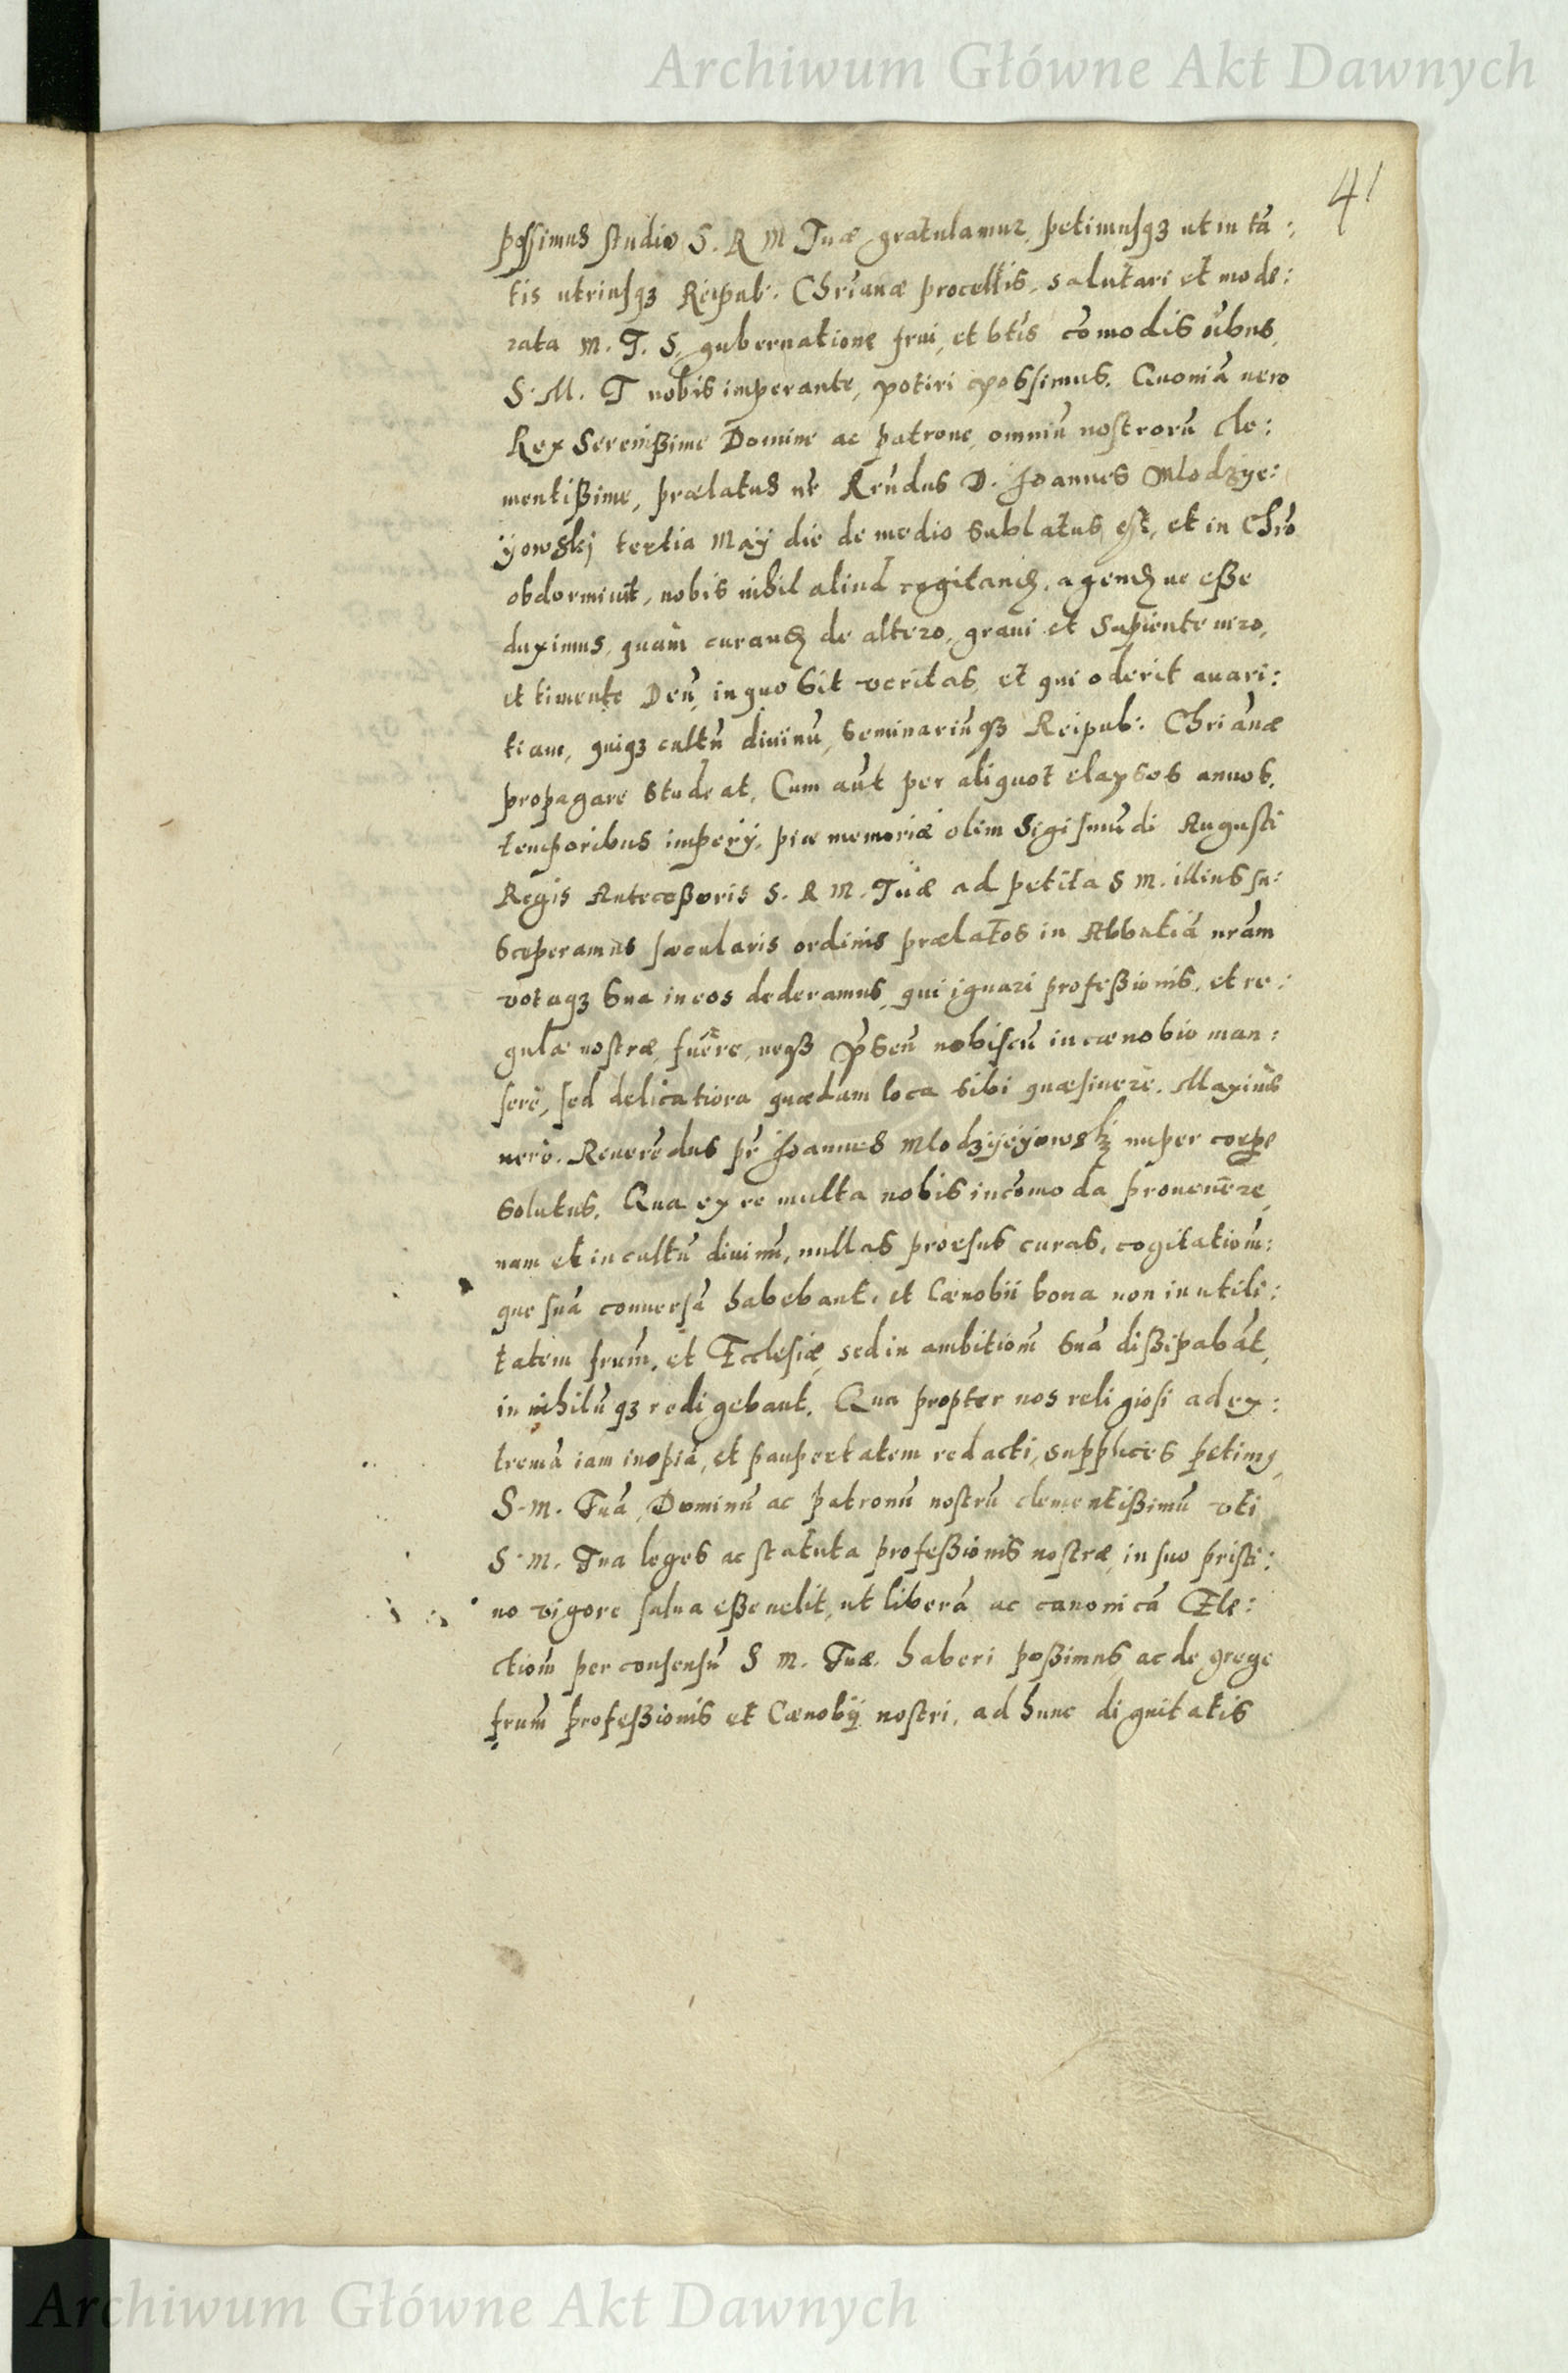 Archiwum Główne Akt Dawnych
41
possimus studio S. R M Tuæ gratulamur, petimusqȝ ut in tā:
tis utriusqȝ Reipub: Chrianæ procellis, salutari et mode:
rata M. T. S. gubernatione frui, et btīs cōmodis oībus,
S. M. T nobis imperante, potiri possimus. Quoniā vero
Rex Serenißime Domine ac patrone omniū nostrorū cle:
mentißime, prælatus nr̄ Rēudus D. Joannes Mlodzye:
ÿowskj tertia Maÿ die de medio sublatus est, et in Chrō
obdormiuit, nobis nihil aliud cogitand, agend ue eße
duximus, quam curand de altero, graui et Sapiente uiro,
et timente Deū, in quo sit veritas, et qui oderit auari:
tiam, quiqȝ cultū diuinū, seminariūqȝ Reipub: Chrianæ
propagare studeat. Cum aūt per aliquot elapsos annos,
temporibus imperÿ, piæ memoriæ olim Sigismūdi Augusti
Regis Anteceßoris S. R M. Tuæ ad petita S M. illius su:
sceperamus sæcularis ordinis prælatos in Abbatiā nrām
votaqȝ sua in eos dederamus, qui ignari profeßionis, et re:
gulæ nostræ, fuēre, neqȝ p̄sen̄ nobiscū in cænobio man:
serē, sed delicatiora quædam loca sibi quæsiuerē. Maximē
uero. Reuerēdus pr̄ Joannes Mlodzÿeÿowskj nuper corpe
solutus. Qua ex re multa nobis incōmoda prouenēre,
nam et in cultū diuinū, nullas prorsus curas, cogitationē:
que suā conuersā habebant, et Cænobii bona non in utili:
tatem frum̄, et Ecclesiæ, sed in ambitionē suā dißipabāt,
in nihilūqȝ redigebant. Qua propter nos religiosi ad ex:
tremā iam inopiā, et paupertatem redacti, supplices petimꝰ
S. M. Tuā, Dominū ac patronū nostrū clementißimū vti
S. M. Tua leges ac statuta profeßionis nostræ, in suo pristi:
no vigore salua eße uelit, ut liberā ac canonicā Ele:
ctionē per consensū S M. Tuæ. haberi poßimus, ac de grege
frum̄ profeßionis et Cænobÿ nostri, ad hunc dignitatis
Archiwum Główne Akt Dawnych